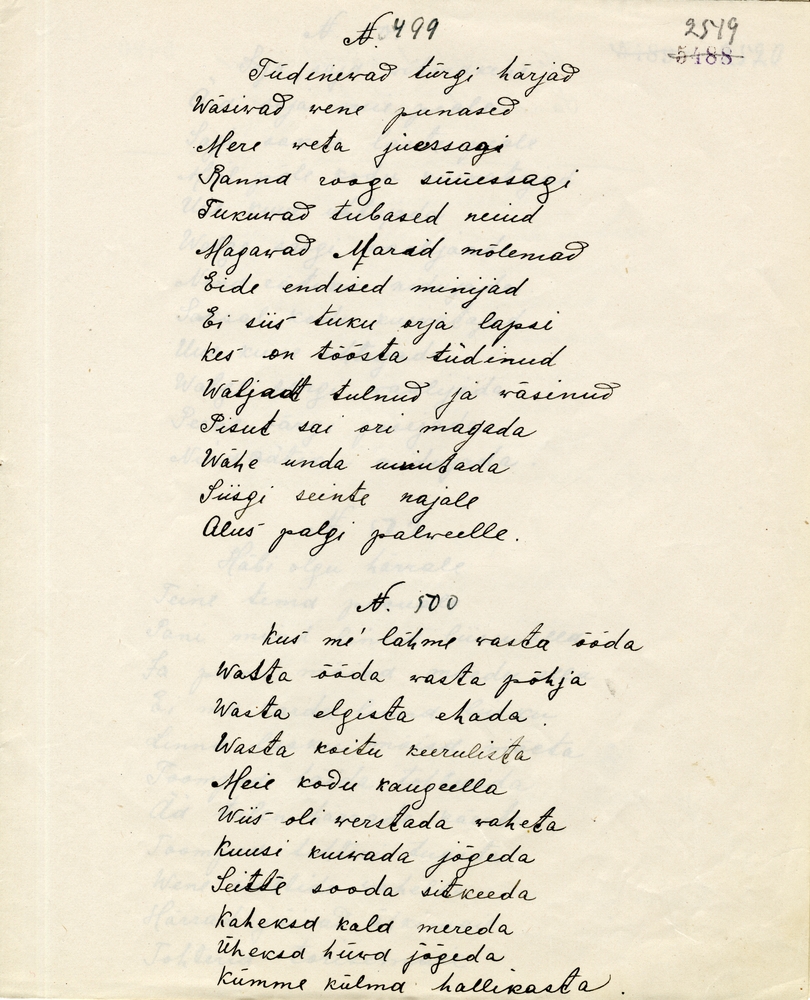 N. 499
2519
5488
Tüdinewad türgi härjad
Wäsiwad wene punased
Mere weta juessagi
Rannd rooga süüessagi
Tukuwad tubased neiud
Magawad Marid mõlemad
Eide endised minijad
Ei siis tuku orja lapsi
Kes on töösta tüdinud
Wäljast tulnud ja wäsinud
Pisut sai ori magada
Wähe unda uinutada
Siisgi seinte najale
Alus palgi palweelle.
N. 500
Kus me' lähme wasta ööda
Wasta ööda wasta põhja
Wasta elgista ehada
Wasta koitu keerulista
Meie kodu kaugeella
Wiis oli werstada waheta
Kuusi kuiwada jõgeda
Seitse sooda sitkeeda
Kaheksa kald mereda
Üheksa hüwd jõgeda
Kümme külma hallikasta.